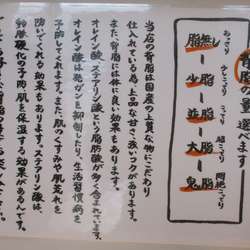 の量選
あっさり
こってり
超こってり
脂無し
少脂
並脂
大脂
鬼脂
当店の背脂は国産の上質な物にこだわり
仕入れている為、上品な甘さ、強いコクがあります。
また、背脂には体に良い効果もあります。
オレイン酸、ステアリン酸という脂肪酸が多く含まれています。
オレイン酸は発ガンを抑制したり、生活習慣病を
予防してくれます。また、肌のくすみや肌荒れを
防いでくれる効果もあります。ステアリン酸は、
動脈硬化の予防、肌を保湿する効果があるんです。